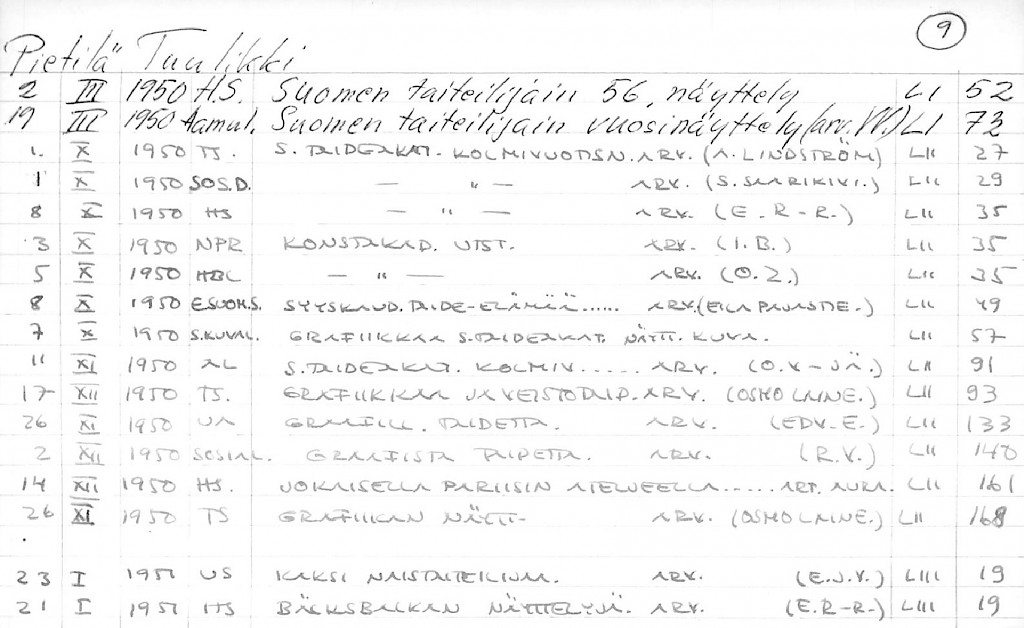 9
Pietilä Tuulikki
2 III 1950 H.S. Suomen taiteilijain 56. näyttely LI 52
19 III 1950 Aamul. Suomen taiteilijain vuosinäyttely (arv. VV.) LI 72
1. X 1950 TS. S. TAIDEAKAT. KOLMIVUOTISN. ARV. (A. LINDSTRÖM) LII 27
1 X 1950 SOS.D. — " — ARV. (S. SAARIKIVI.) LII 29
8 X 1950 HS — " — ARV. (E. R-R.) LII 35
3 X 1950 NPR KONSTAKAD. UTST. ARV. (I.B.) LII 35
5 X 1950 HBL — " — ARV. (O.Z.) LII 35
8 X 1950 E.SUOM.S. SYYSKAUD. TAIDE-ELÄMÄÄ...... ARV. (EILA PAJASTIE.) LII 49
7 X 1950 S.KUVAL. GRAFIIKKAA S.TAIDEAKAT. NÄYTT. KUVA. LII 57
11 XI 1950 AL S.TAIDEAKAT. KOLMIV...... ARV. (O.V-JÄ.) LII 91
17 XII 1950 TS. GRAFIIKKAA JA VEISTOTAID. ARV. (OSMO LAINE.) LII 93
26 XI 1950 UA GRAAFILL. TAIDETTA. ARV. (EDV. E.) LII 133
2 XII 1950 SOSIAL. GRAAFISTA TAIDETTA. ARV. (R.V.) LII 140
14 XII 1950 HS. JOKAISELLA PARIISIN ATELJEELLA..... ART. AURA. LII 161
26 XI 1950 TS GRAFIIKAN NÄYTT. ARV. (OSMO LAINE.) LII 168
23 I 1951 US KAKSI NAISTAITEILIJAA. ARV. (E.J.V.) LIII 19
21 I 1951 HS BÄCKSBACKAN NÄYTTELYJÄ. ARV. (E.R-R.) LIII 19